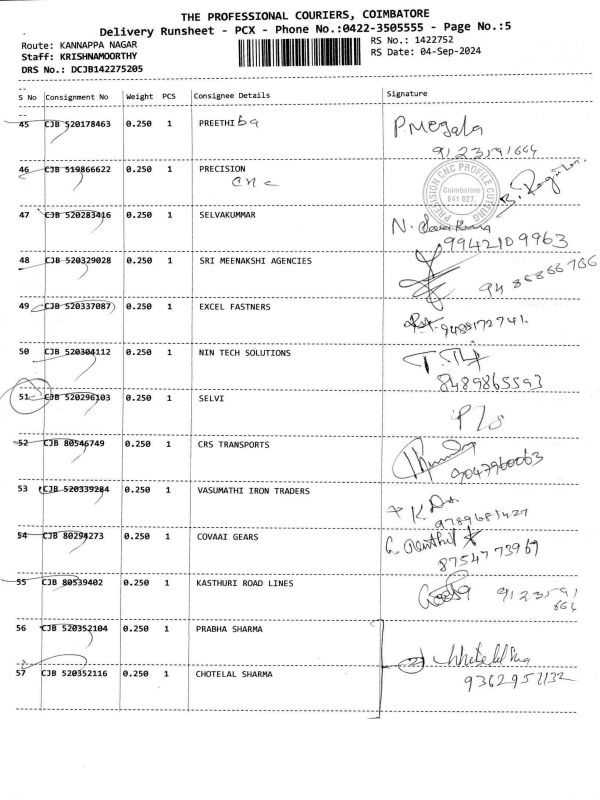 THE PROFESSIONAL COURIERS, COIMBATORE
Delivery Runsheet - PCX - Phone No.:0422-3505555 - Page No.:5
Route: KANNAPPA NAGAR
RS No.: 1422752
Staff: KRISHNAMOORTHY
RS Date: 04-Sep-2024
DRS No.: DCJB142275205
S No Consignment No Weight PCS Consignee Details Signature
45 CJB 520178463 0.250 1 PREETHI ba P Megala
9123591664
46 CJB 519866622 0.250 1 PRECISION
cnc
PRECISION CNC PROFILE CUTTING
Coimbatore
641 027.
47 CJB 520283416 0.250 1 SELVAKUMMAR N.
9942109963
48 CJB 520329028 0.250 1 SRI MEENAKSHI AGENCIES
49 CJB 520337087 0.250 1 EXCEL FASTNERS 9488172741.
50 CJB 520304112 0.250 1 NIN TECH SOLUTIONS
8489865593
51 CJB 520296103 0.250 1 SELVI P/s
52 CJB 80546749 0.250 1 CRS TRANSPORTS
9047960063
53 CJB 520339284 0.250 1 VASUMATHI IRON TRADERS
9789681427
54 CJB 80294273 0.250 1 COVAAI GEARS
8754773969
55 CJB 80539402 0.250 1 KASTHURI ROAD LINES 9123591
664
56 CJB 520352104 0.250 1 PRABHA SHARMA
57 CJB 520352116 0.250 1 CHOTELAL SHARMA